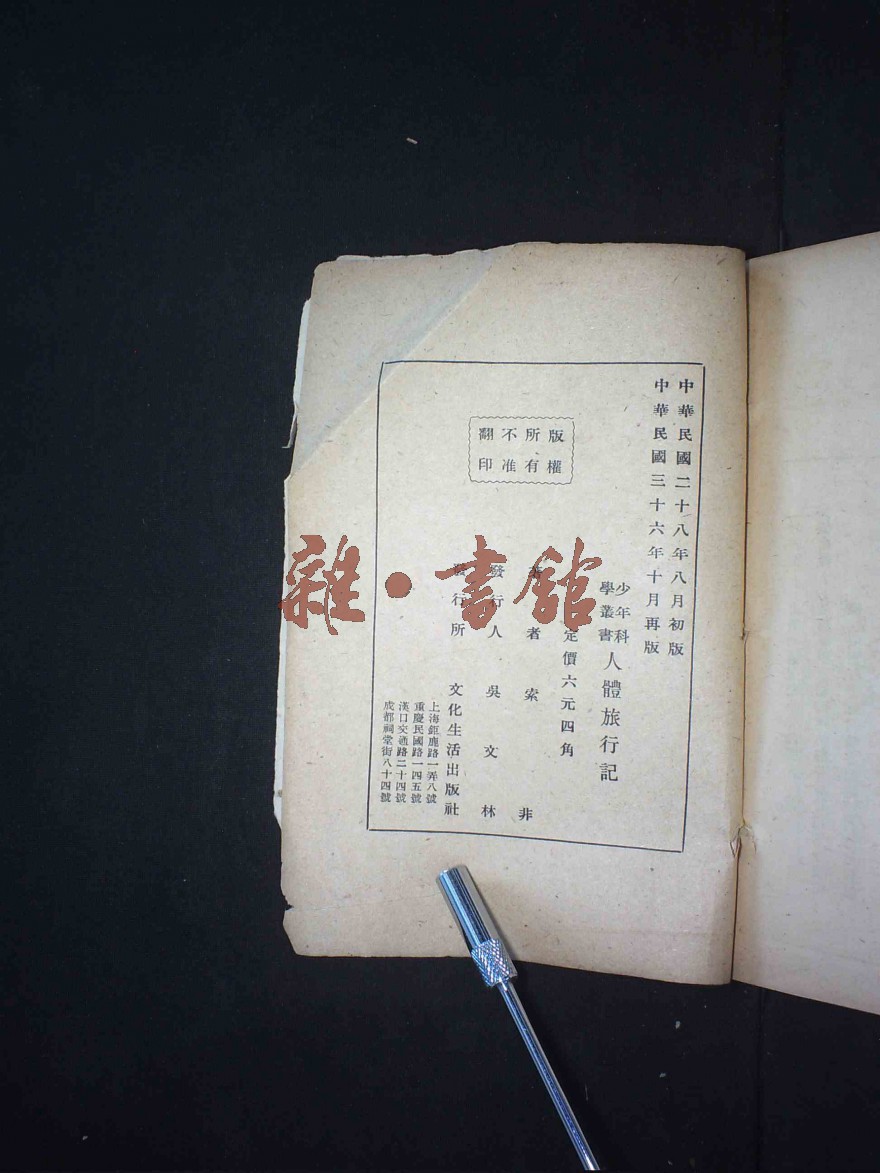 中華民國二十八年八月初版
中華民國三十六年十月再版
少年科學叢書 人體旅行記
定價六元四角
著者 索非
發行人 吳文林
發行所 文化生活出版社
上海鉅鹿路一弄八號
重慶民國路一四五號
漢口交通路二十四號
成都祠堂街八十四號
版權所有
不准翻印
雜·書館